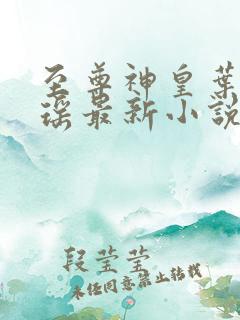 至尊神皇葉
瑶最新小說
段莹莹
未经同意禁止转载